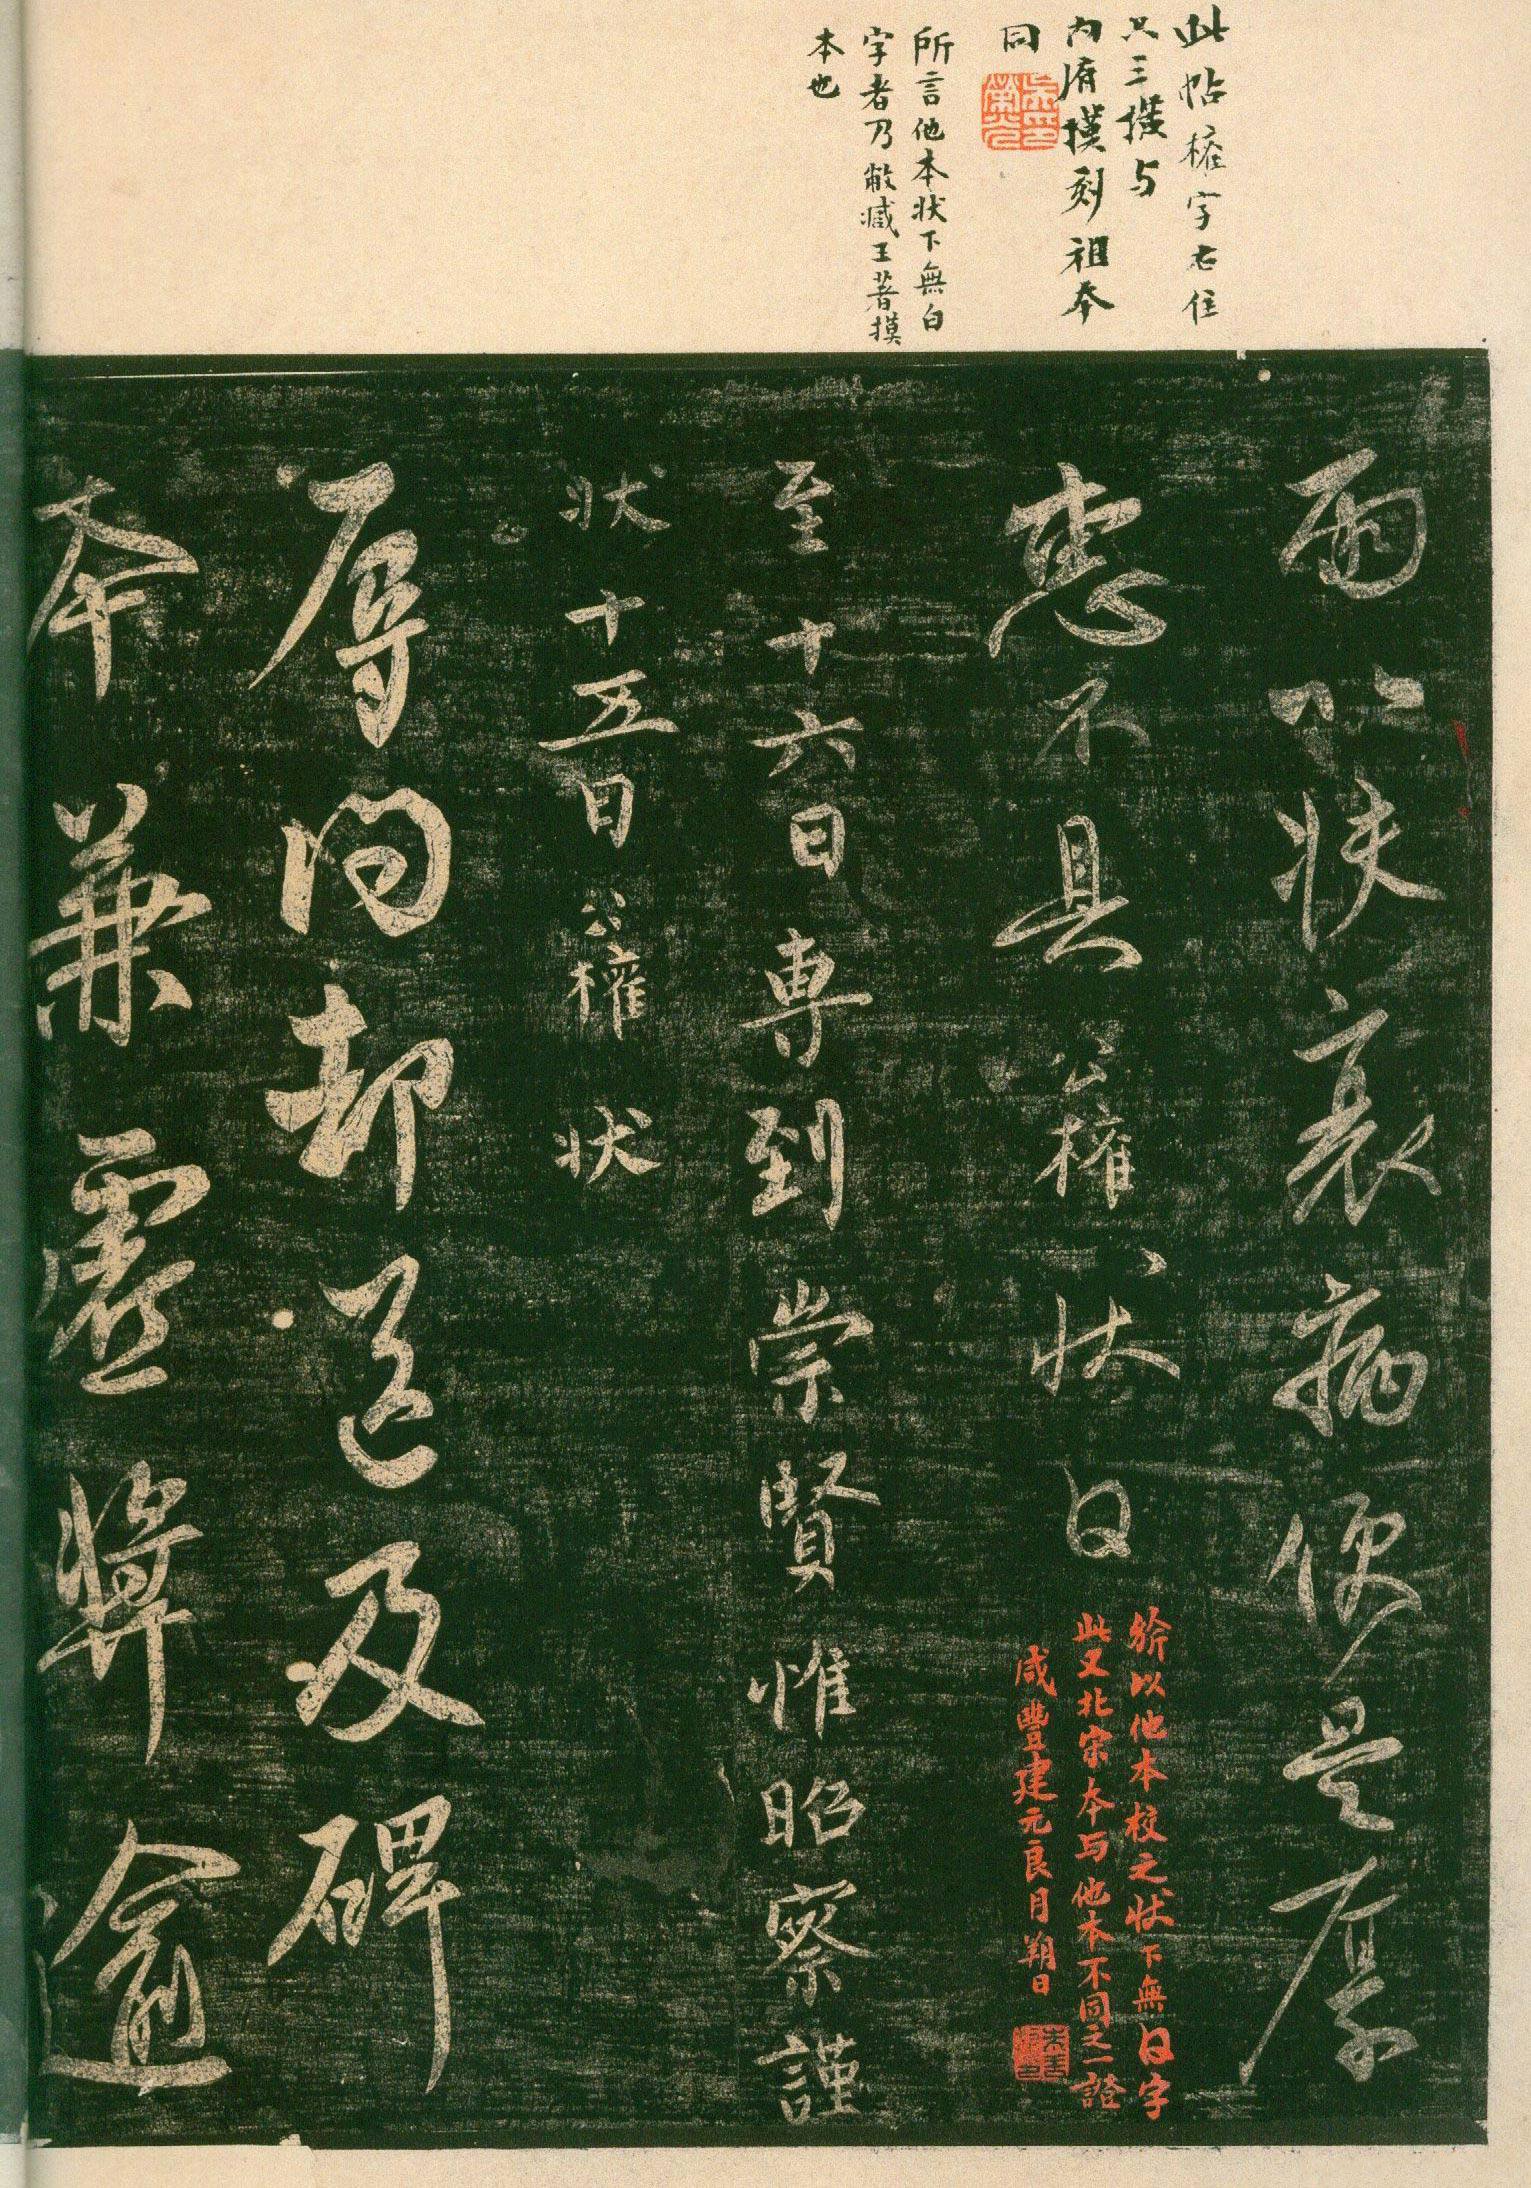 此帖權字右住
只三橫与
内府摸刻祖本
同
所言他本狀下無白
字者乃敝臧王著摸
本也
兩行狀衰病便是厚
惠不具公權狀白
於以他本校之狀下無白字
此又北宋本与他本不同之一證
咸豐建元良月朔日
至十六日專到崇賢惟昭察謹
狀十五日公權狀
辱问却送及碑
本兼垂獎逾